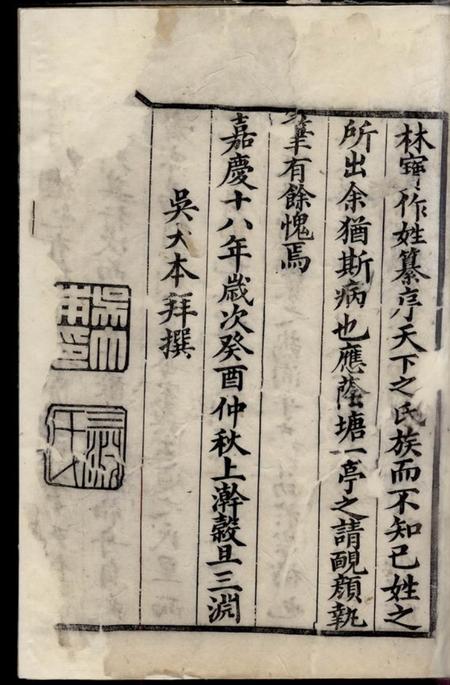 林寶作姓纂序天下之氏族而不知已姓之
所出余猶斯病也應蔭塘一亭之請靦顏執
筆有餘愧焉
嘉慶十八年歲次癸酉仲秋上澣穀旦三淵
吳大本拜撰
吳大本印